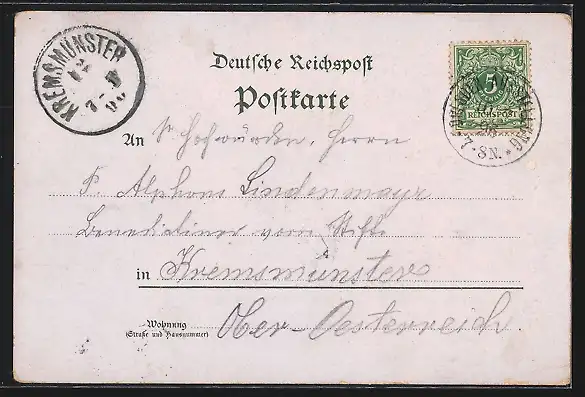 KREMSMÜNSTER
Deutsche Reichspost
Postkarte
5
REICHSPOST
7-8N.
An Sr Hochwürden, Herrn
P. Alphons Lindenmayr
Benedictiner vom Stifte
in Kremsmünster
Wohnung
(Straße und Hausnummer)
Ober-Oesterreich.